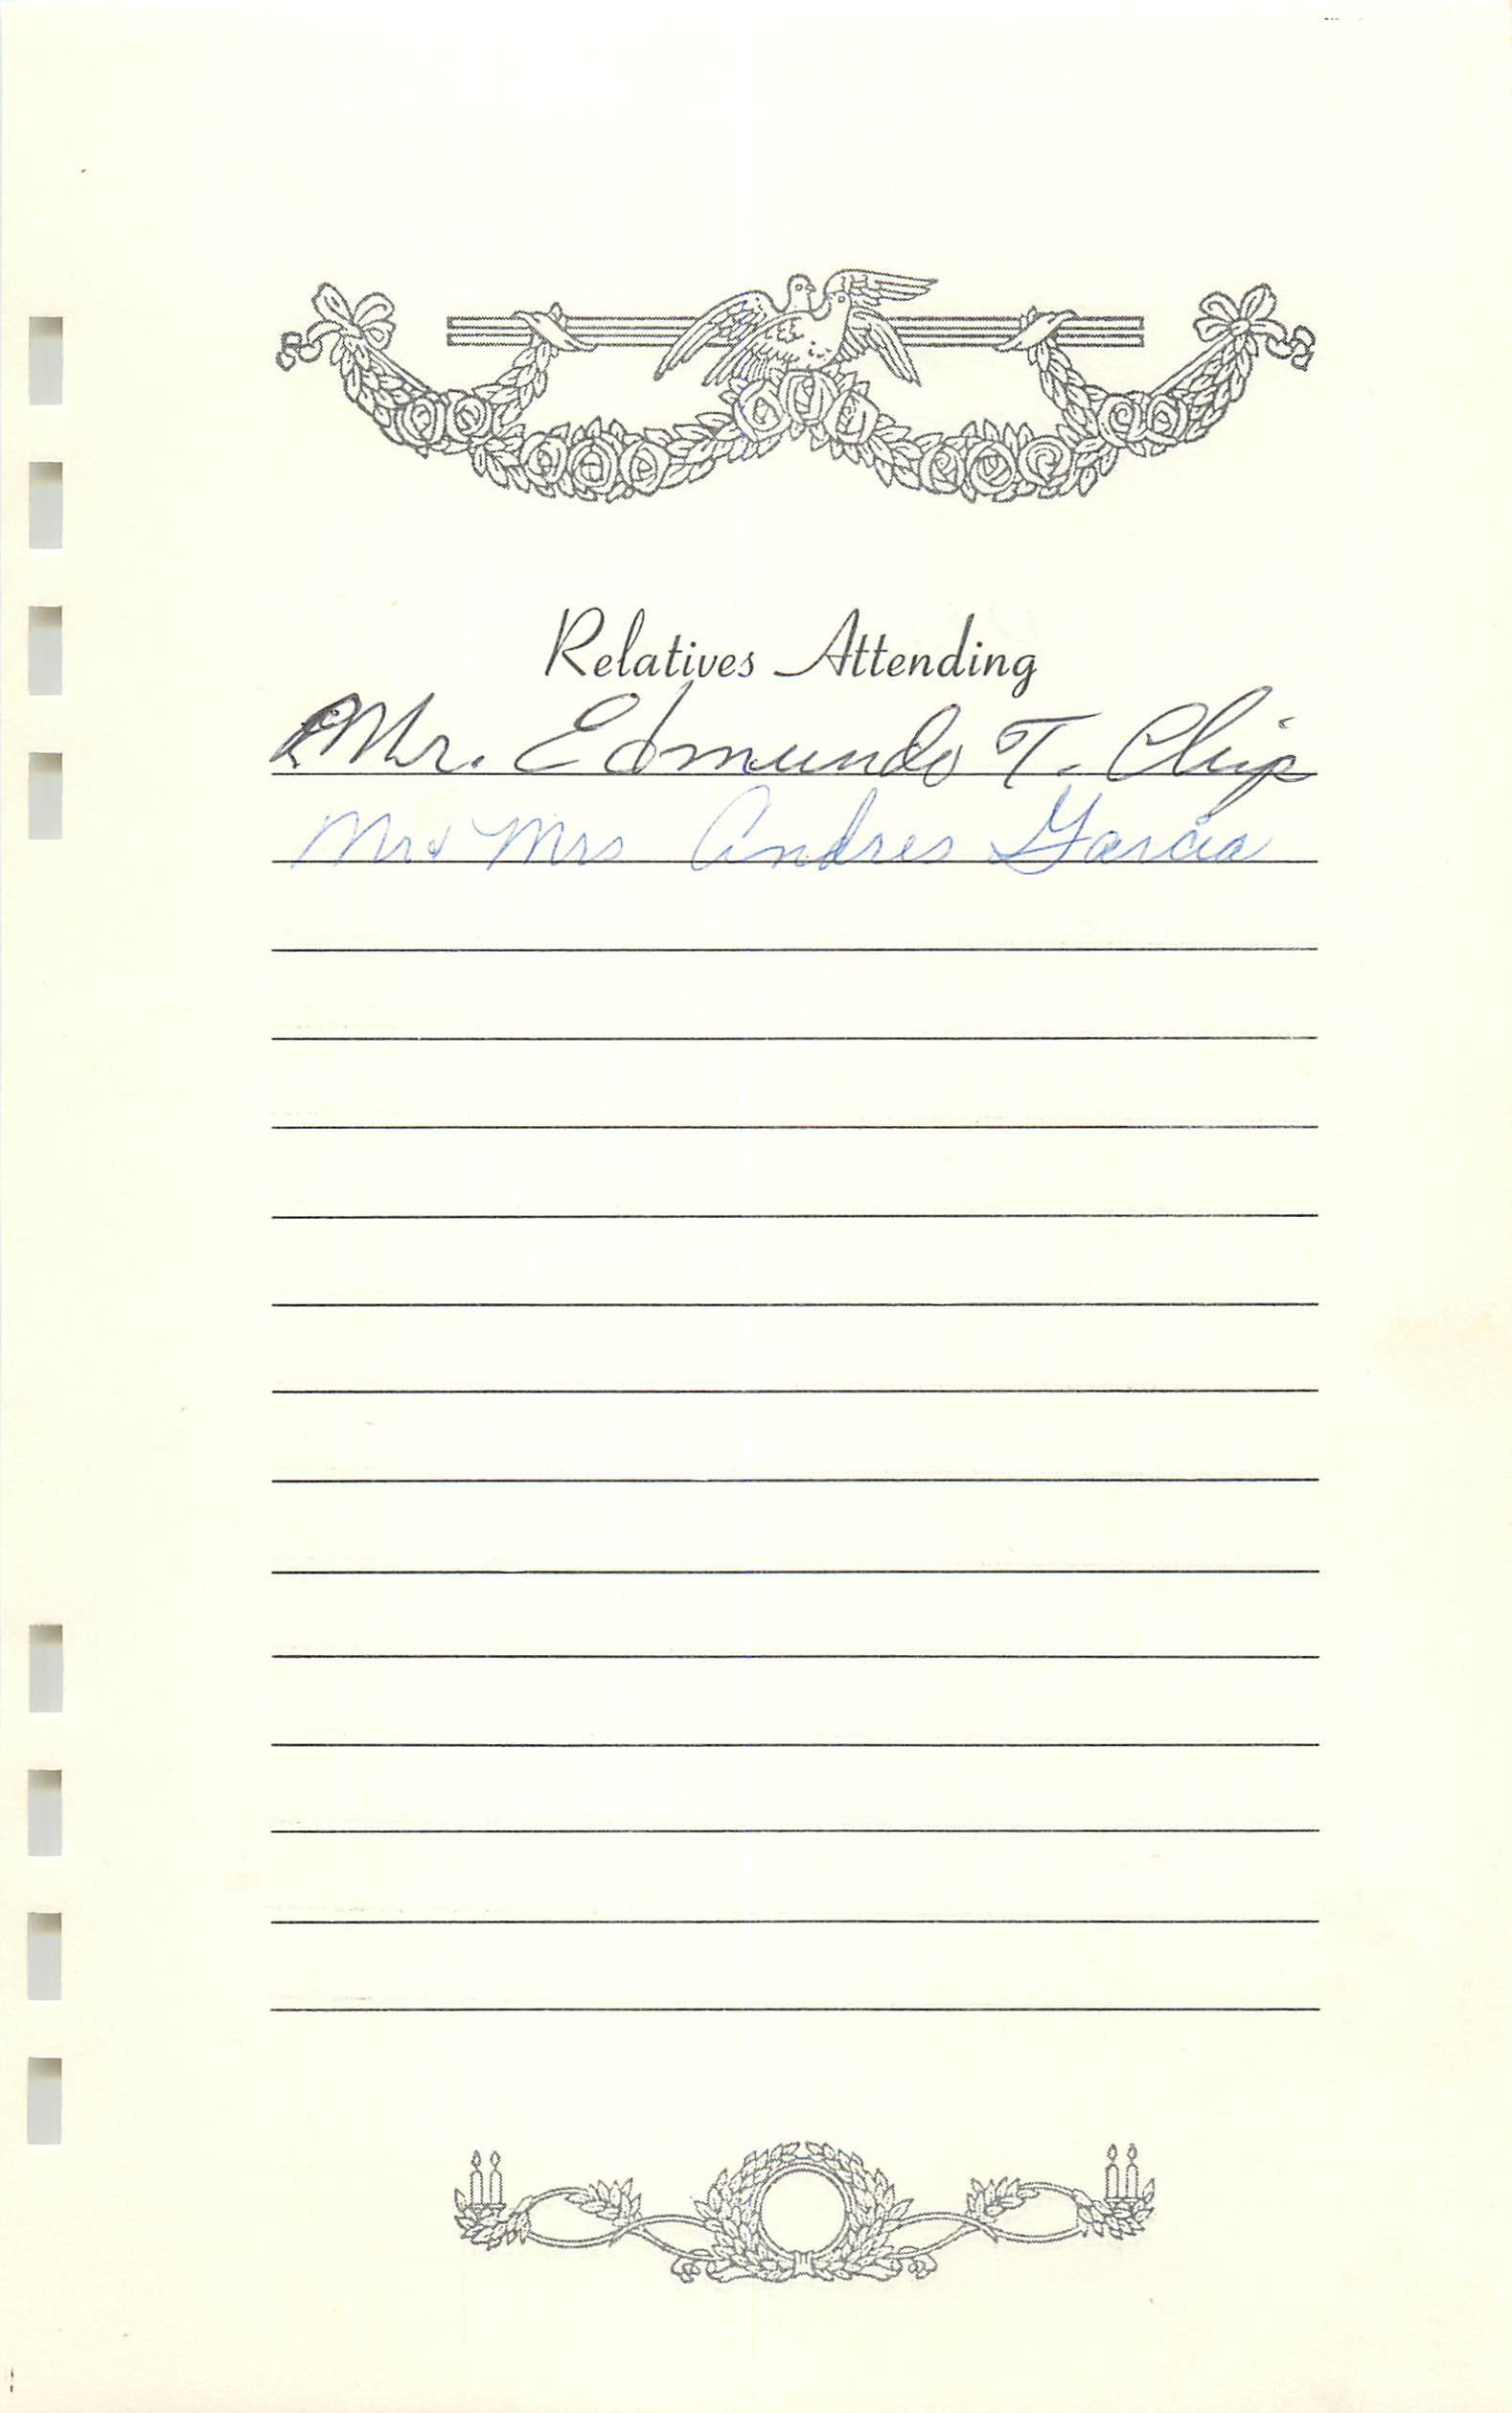 Relatives Attending
Mr. Edmundo T. Chip
Mr & Mrs Andres Garcia